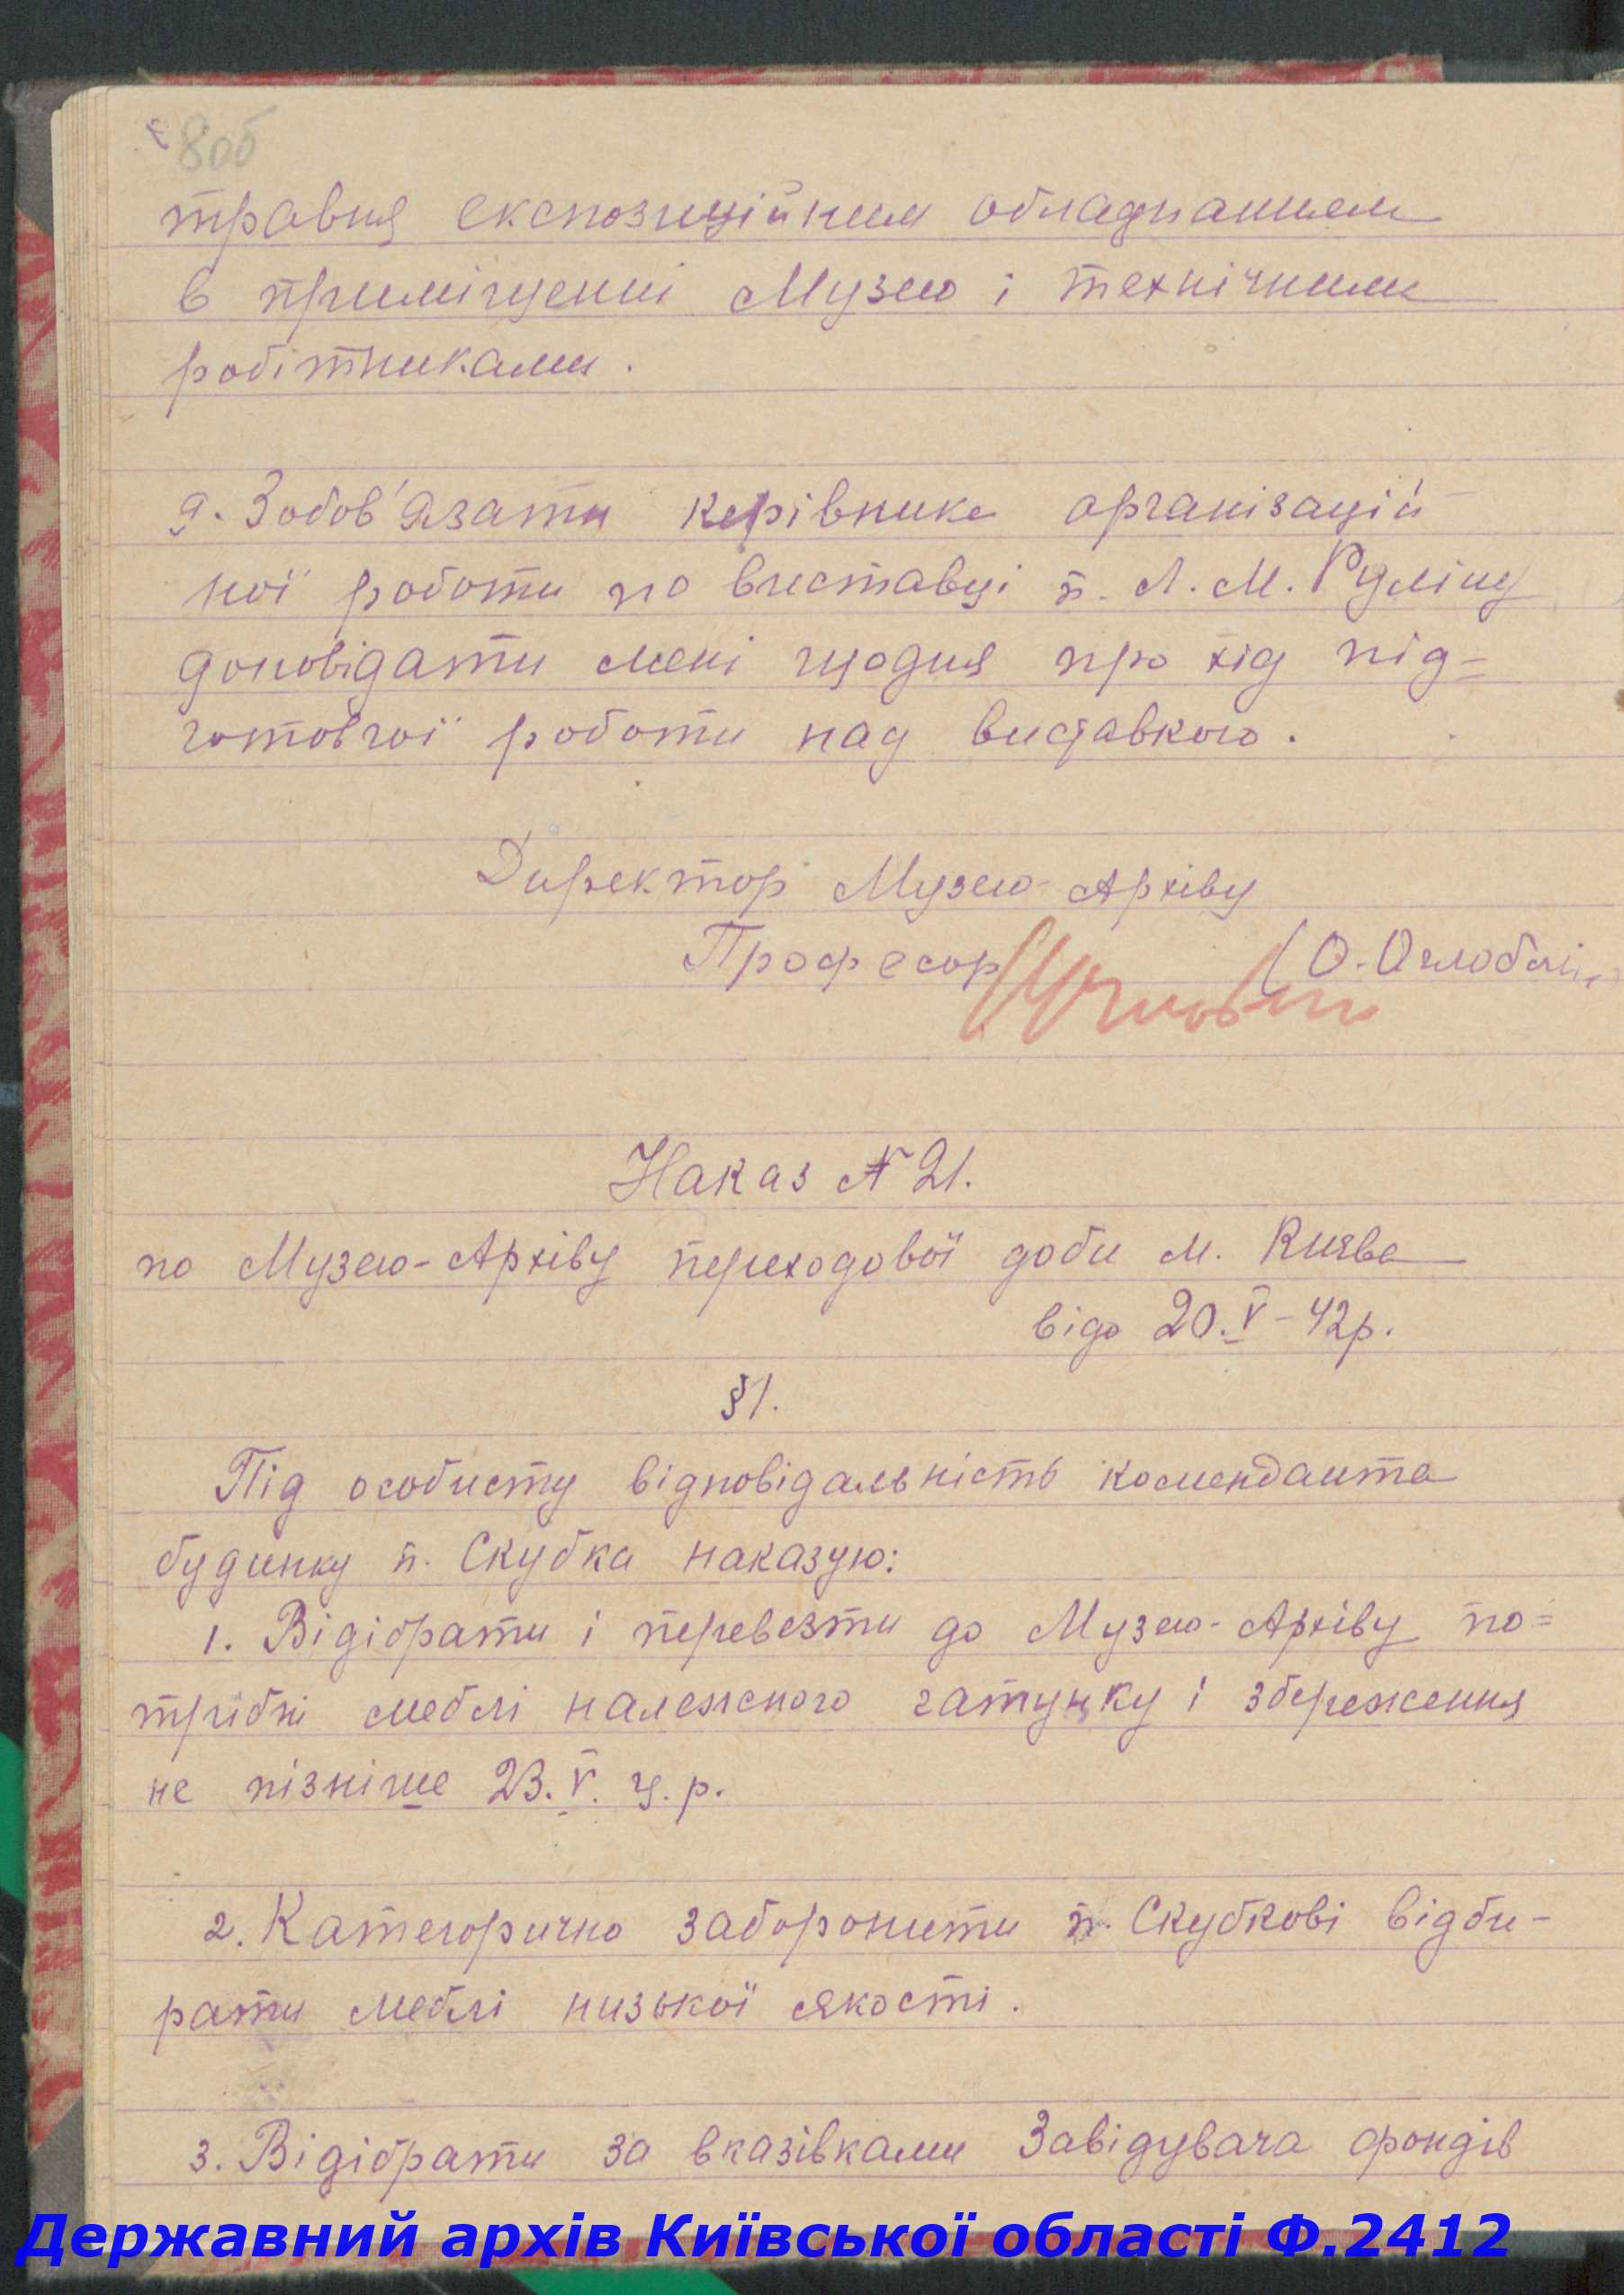 8об
травня експозиційним обладнанням
в приміщенні Музею і технічними
робітниками.
9. Зобов'язати керівника організацій
ної роботи по виставці п. Л. М. Руліну
доповідати мені щодня про хід під=
готовчої роботи над виставкою.
Директор Музею-Архіву
Професор (О. Оглоблин
Наказ № 21.
по Музею-Архіву переходової доби м. Києва
від 20.V-42р.
§1.
Під особисту відповідальність коменданта
будинку п. Скубка наказую:
1. Відібрати і перевезти до Музею-Архіву по=
трібні меблі належного гатунку і збереження
не пізніше 23.V. ц.р.
2. Категорично заборонити п. Скубкові відби-
рати меблі низької якості.
3. Відібрати за вказівками Завідувача фондів
Державний архів Київської області Ф.2412